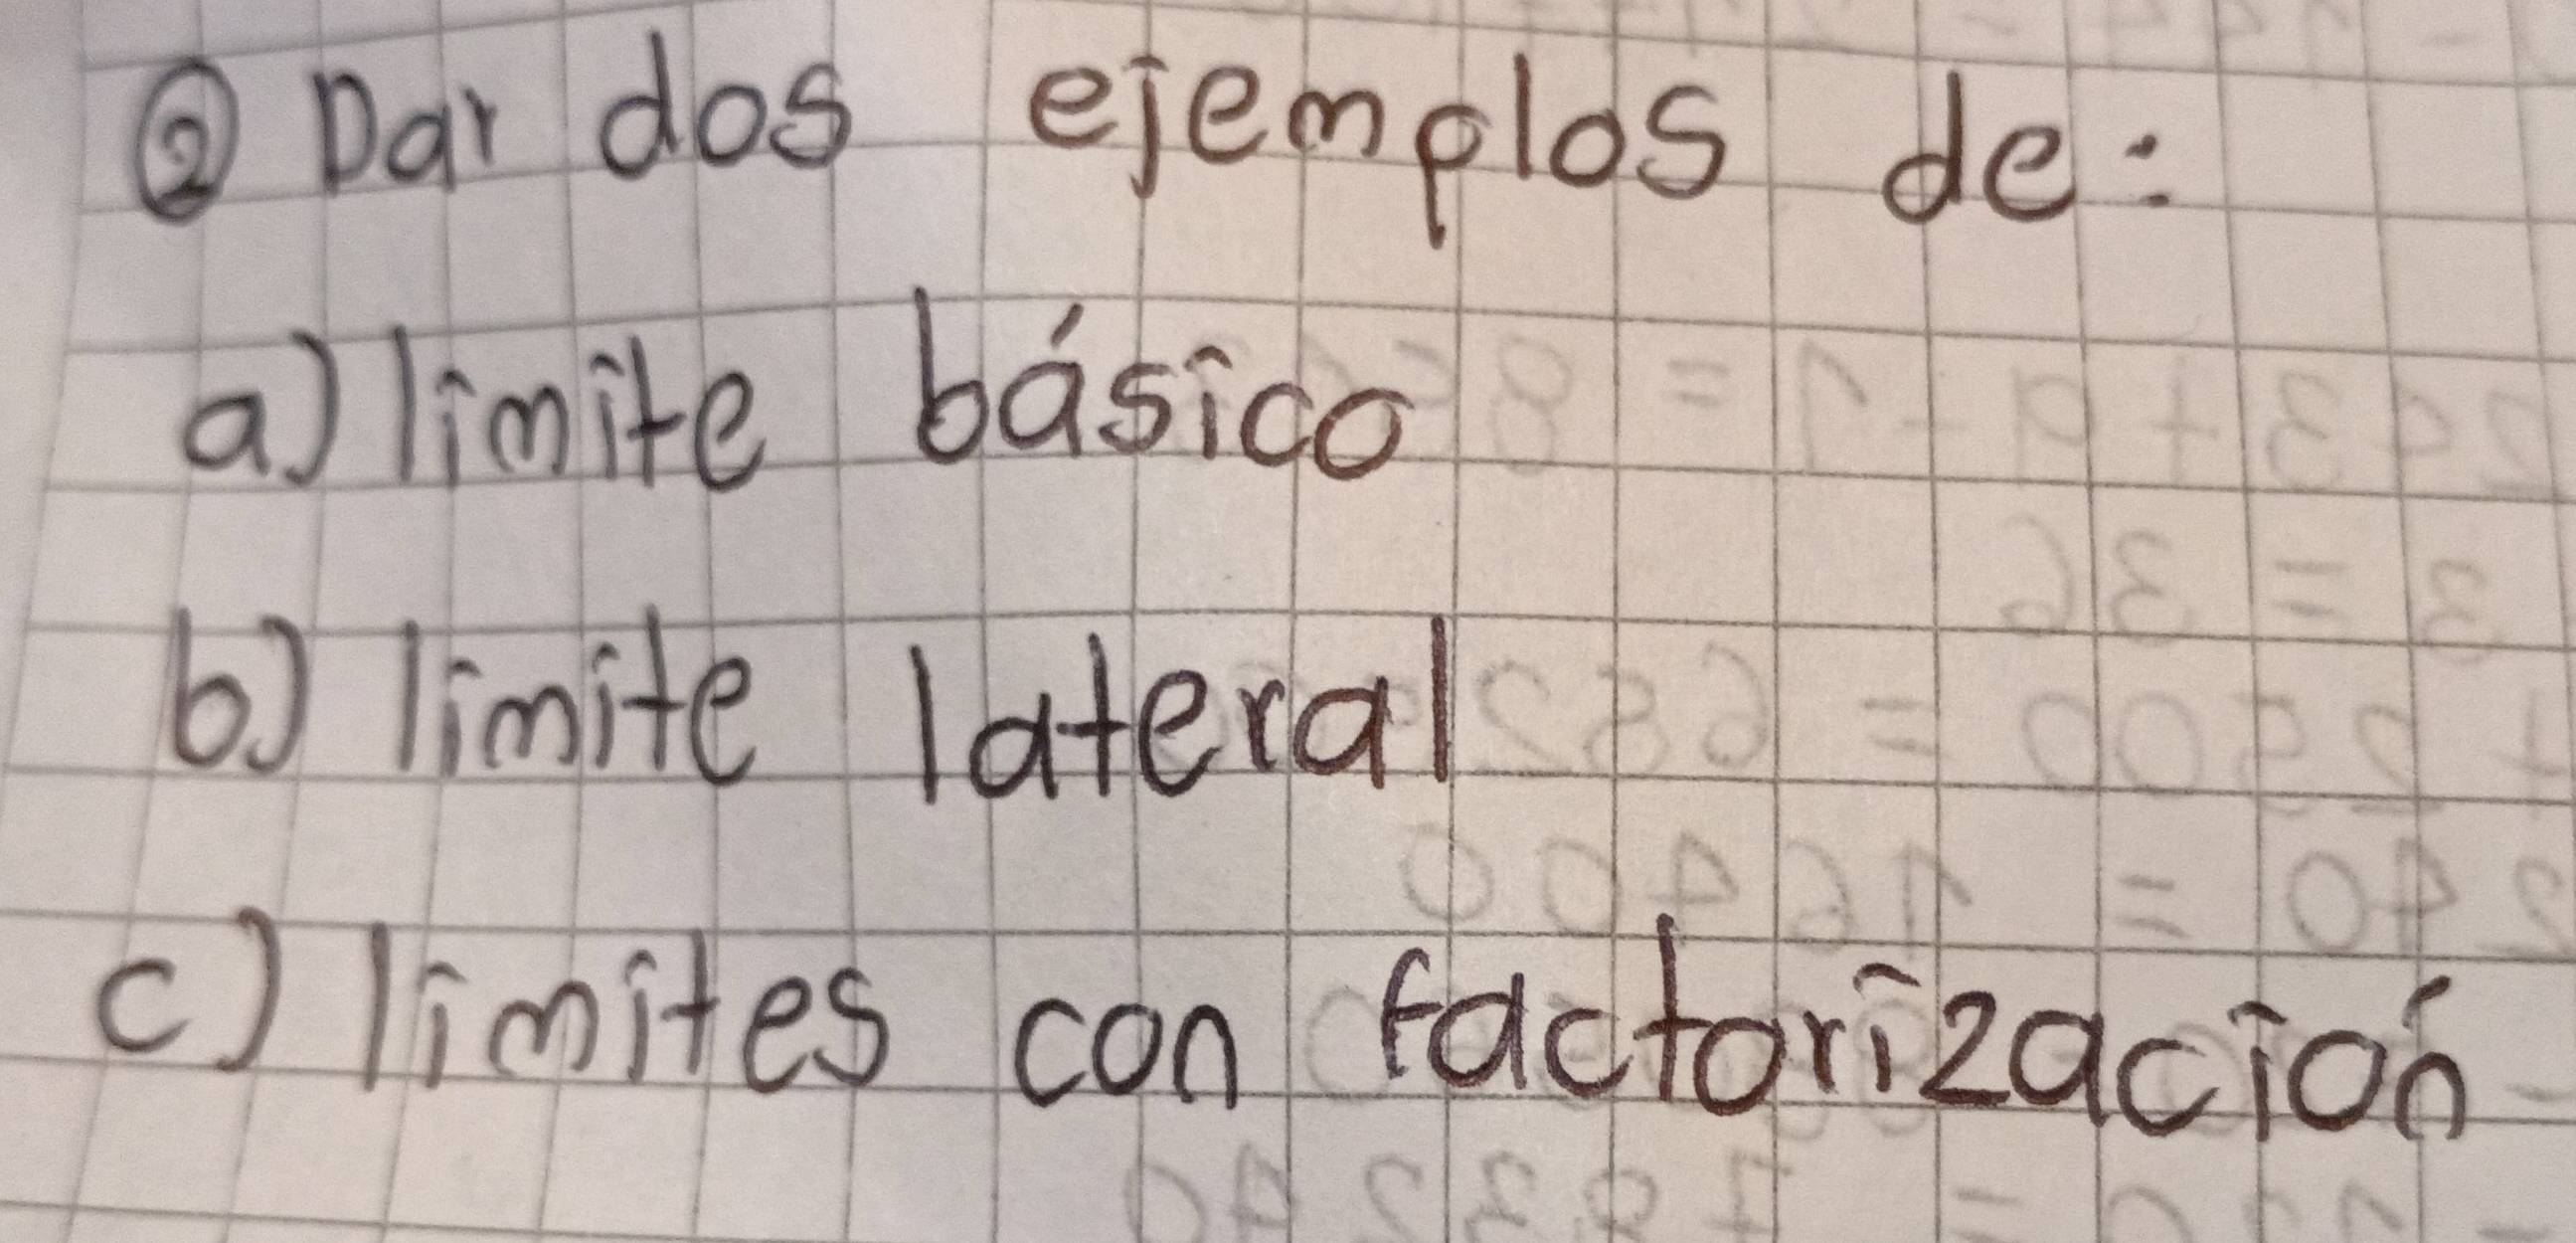 ② Dar dos ejemplos de:
a) limite básico
b) limite lateral
c) limites con factorización